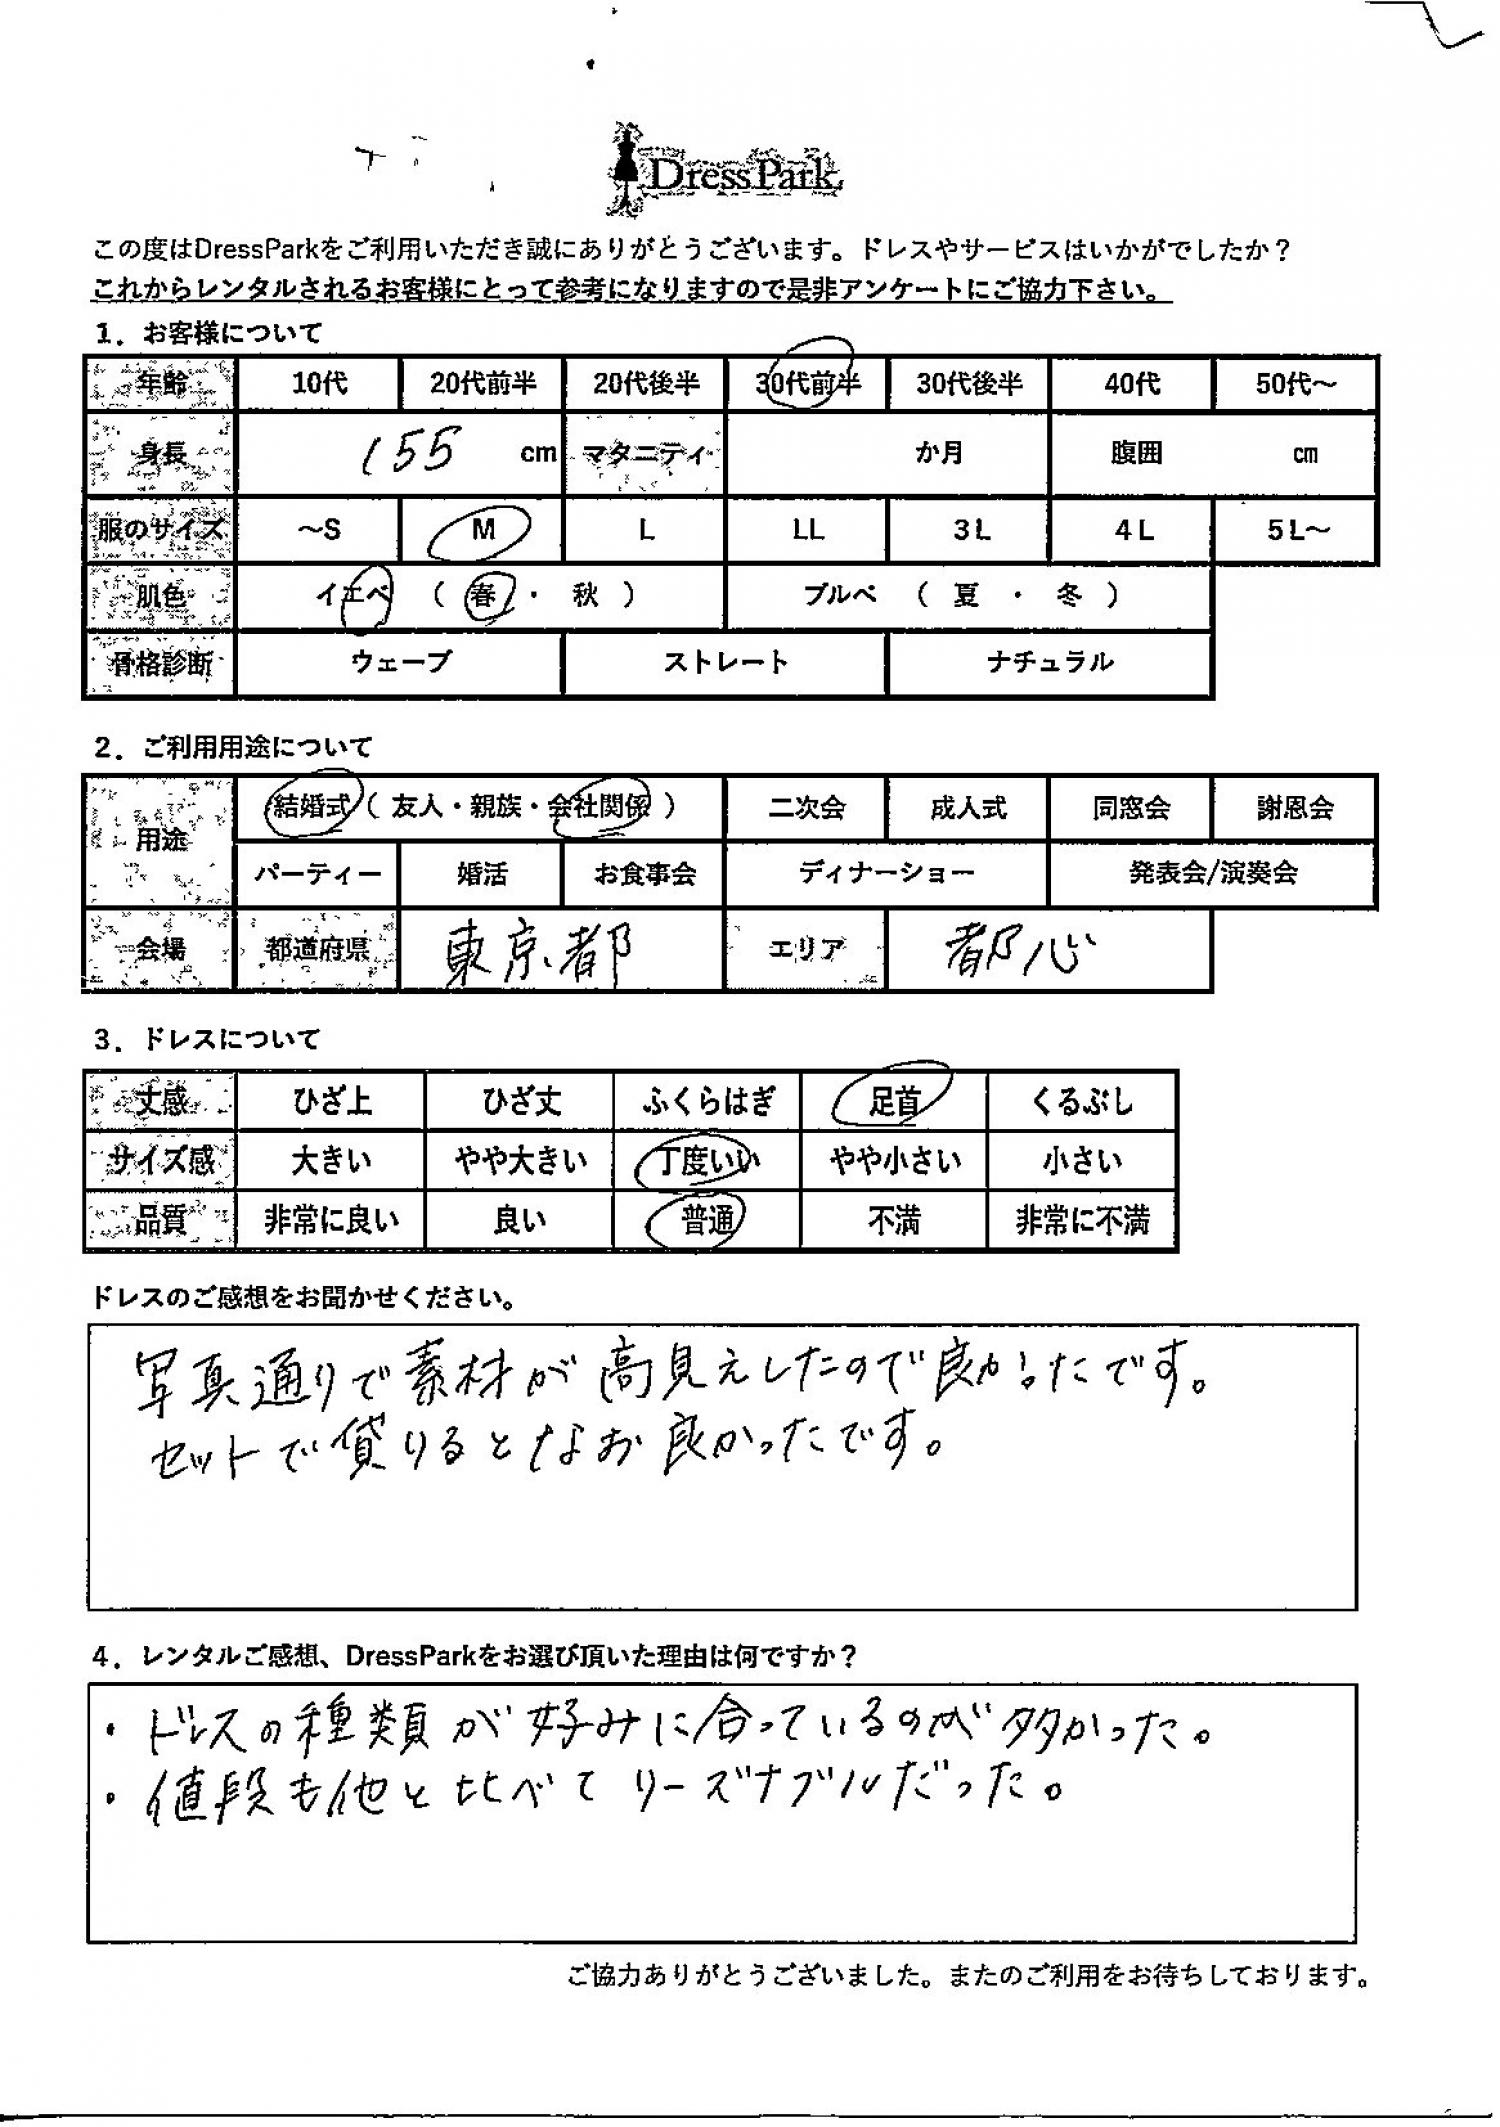 DressPark
この度はDressParkをご利用いただき誠にありがとうございます。ドレスやサービスはいかがでしたか？
これからレンタルされるお客様にとって参考になりますので是非アンケートにご協力下さい。
1．お客様について
年齢 10代 20代前半 20代後半 30代前半 30代後半 40代 50代～
身長 155 cm マタニティ か月 腹囲 cm
服のサイズ ～S M L LL 3L 4L 5L～
肌色 イエベ （ 春 ・ 秋 ） ブルベ （ 夏 ・ 冬 ）
骨格診断 ウェーブ ストレート ナチュラル
2．ご利用用途について
用途 結婚式（ 友人・親族・会社関係 ） 二次会 成人式 同窓会 謝恩会
パーティー 婚活 お食事会 ディナーショー 発表会/演奏会
会場 都道府県 東京都 エリア 都心
3．ドレスについて
丈感 ひざ上 ひざ丈 ふくらはぎ 足首 くるぶし
サイズ感 大きい やや大きい 丁度いい やや小さい 小さい
品質 非常に良い 良い 普通 不満 非常に不満
ドレスのご感想をお聞かせください。
写真通りで素材が高見えしたので良かったです。
セットで貸りるとなお良かったです。
4．レンタルご感想、DressParkをお選び頂いた理由は何ですか？
・ドレスの種類が好みに合っているのが多かった。
・値段も他と比べてリーズナブルだった。
ご協力ありがとうございました。またのご利用をお待ちしております。